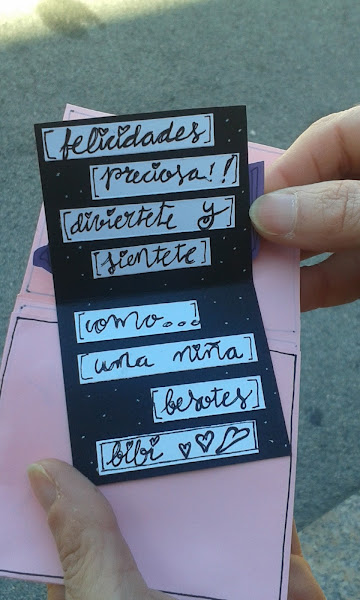 [felicidades]
[preciosa!!]
[diviertete y]
[sientete]
[como...]
[una niña]
[besotes]
[bibi ♡♡♡]